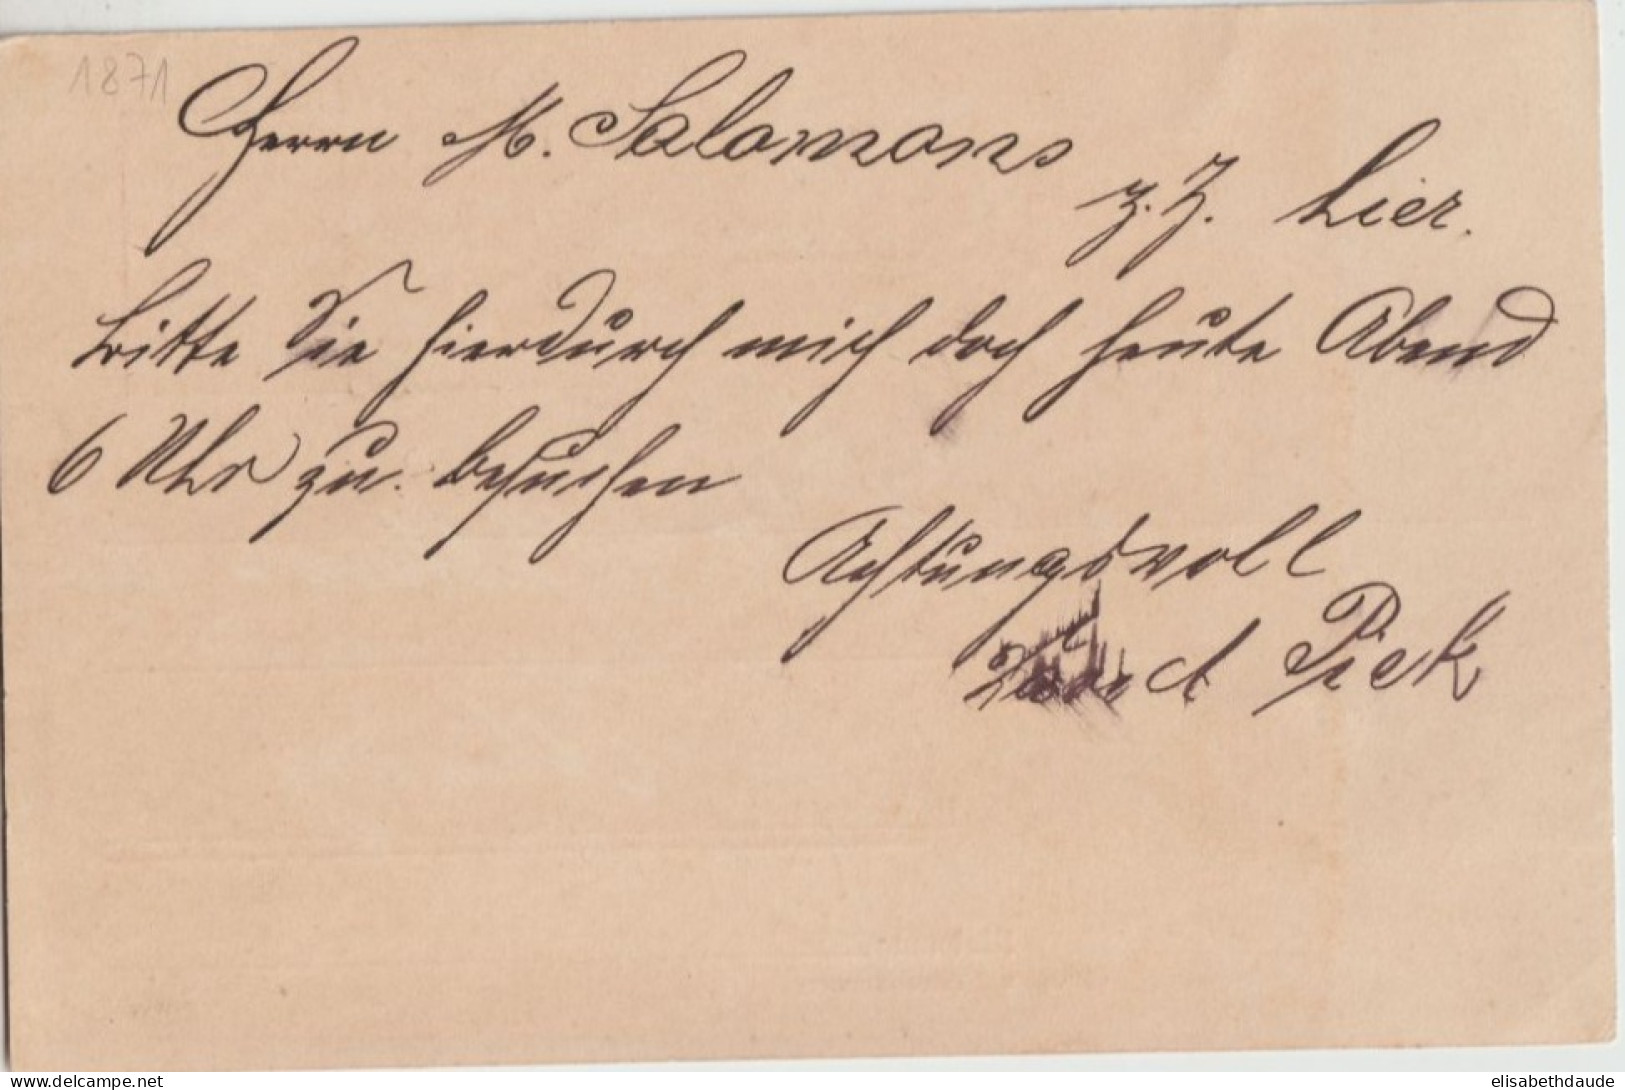 1871
Herrn M. Salomons
z. Z. hier.
bitte Sie hierdurch mich doch heute Abend
6 Uhr zu besuchen
Achtungsvoll
Pick
elisabethdaude
www.delcampe.net